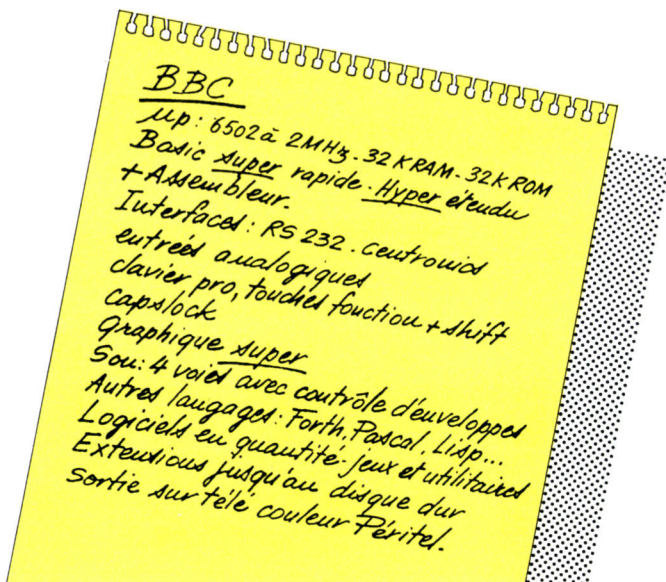 BBC
µp: 6502 à 2MHz. 32K RAM. 32K ROM
Basic super rapide. Hyper étendu
+ Assembleur.
Interfaces: RS 232. Centronics
entrées analogiques
clavier pro, touches fonction + shift
capslock
Graphique super
Son: 4 voies avec contrôle d'enveloppes
Autres langages: Forth, Pascal, Lisp...
Logiciels en quantité. jeux et utilitaires
Extensions jusqu'au disque dur
Sortie sur télé couleur Péritel.